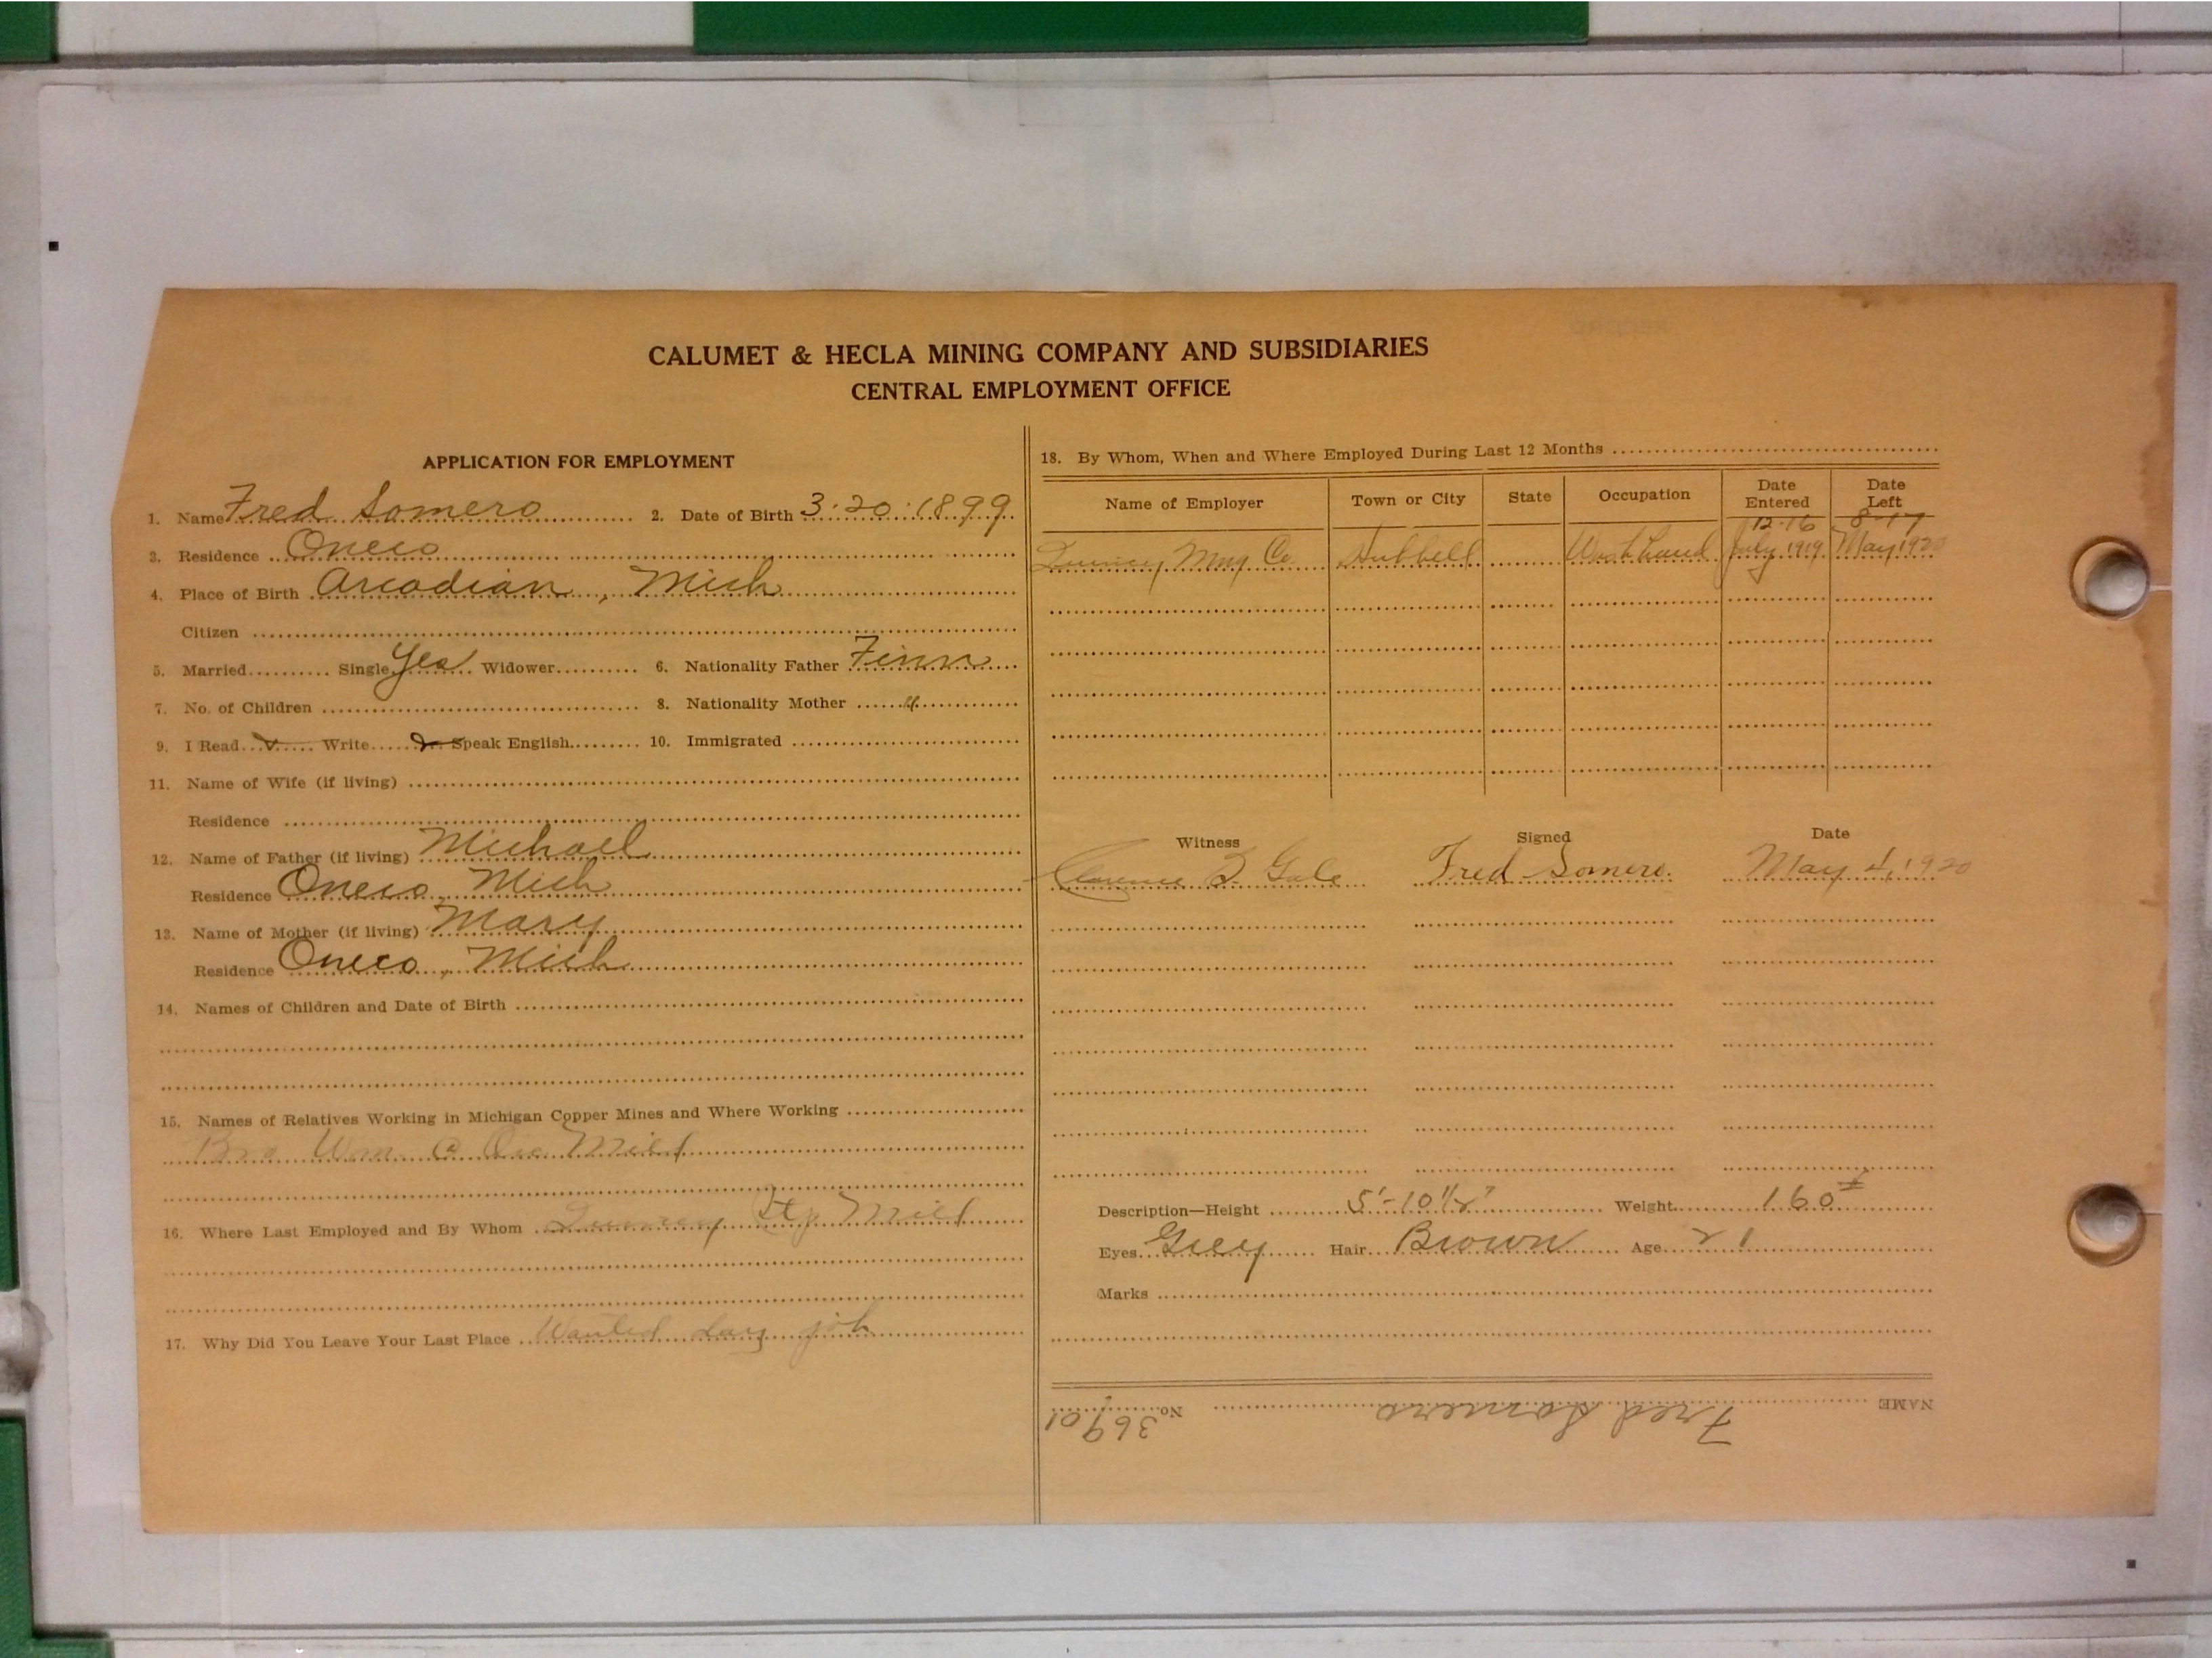 CALUMET & HECLA MINING COMPANY AND SUBSIDIARIES
CENTRAL EMPLOYMENT OFFICE
APPLICATION FOR EMPLOYMENT
1. Name Fred Somero 2. Date of Birth 3-20-1899
3. Residence Oneco
4. Place of Birth Arcadian, Mich
Citizen
5. Married Single Yes Widower 6. Nationality Father Finn
7. No. of Children 8. Nationality Mother "
9. I Read Write Speak English 10. Immigrated
11. Name of Wife (if living)
Residence
12. Name of Father (if living) Michael
Residence Oneco, Mich
13. Name of Mother (if living) Mary
Residence Oneco, Mich
14. Names of Children and Date of Birth
15. Names of Relatives Working in Michigan Copper Mines and Where Working
Bro Wm @ Mill
16. Where Last Employed and By Whom Quincy Mill
17. Why Did You Leave Your Last Place Wanted day job
18. By Whom, When and Where Employed During Last 12 Months
Name of Employer Town or City State Occupation Date Entered Date Left
12-16 8-17
Quincy Mng Co. Hubbell July 1919 May 1920
Witness Signed Date
Clarence Gale Fred Somero. May 4, 1920
Description—Height 5'-10 1/2" Weight 160#
Eyes Grey Hair Brown Age 21
Marks
NAME Fred Somero No. 36901